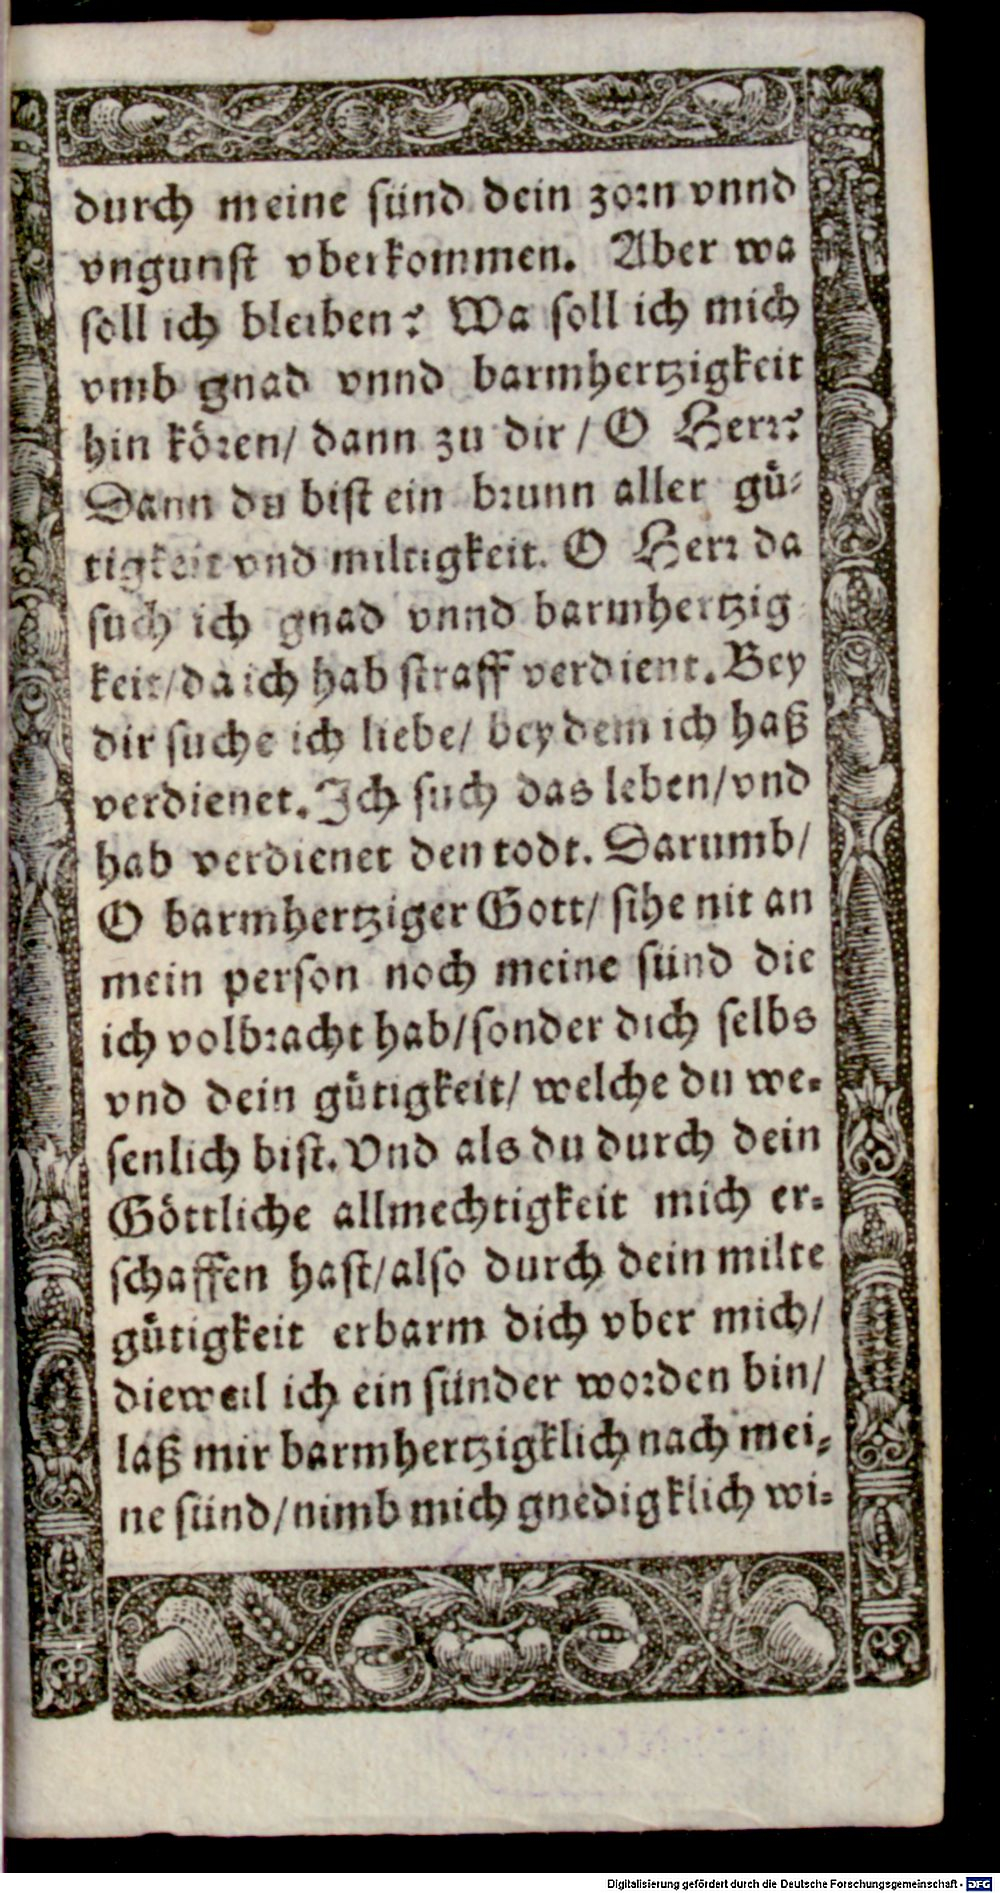 durch meine sünd dein zorn vnnd
vngunst vberkommen. Aber wa
soll ich bleiben? Wa soll ich mich
vmb gnad vnnd barmhertzigkeit
hin kören/ dann zu dir / O Herr?
Dann du bist ein brunn aller gü-
tigkeit vnd miltigkeit. O Herr da
such ich gnad vnnd barmhertzig
keit/da ich hab straff verdient. Bey
dir suche ich liebe/ bey dem ich haß
verdienet. Ich such das leben/vnd
hab verdienet den todt. Darumb/
O barmhertziger Gott/ sihe nit an
mein person noch meine sünd die
ich volbracht hab/sonder dich selbs
vnd dein gütigkeit/ welche du we-
senlich bist. Vnd als du durch dein
Göttliche allmechtigkeit mich er-
schaffen hast/also durch dein milte
gütigkeit erbarm dich vber mich/
dieweil ich ein sünder worden bin/
laß mir barmhertzigklich nach mei-
ne sünd/nimb mich gnedigklich wi-
Digitalisierung gefördert durch die Deutsche Forschungsgemeinschaft - DFG